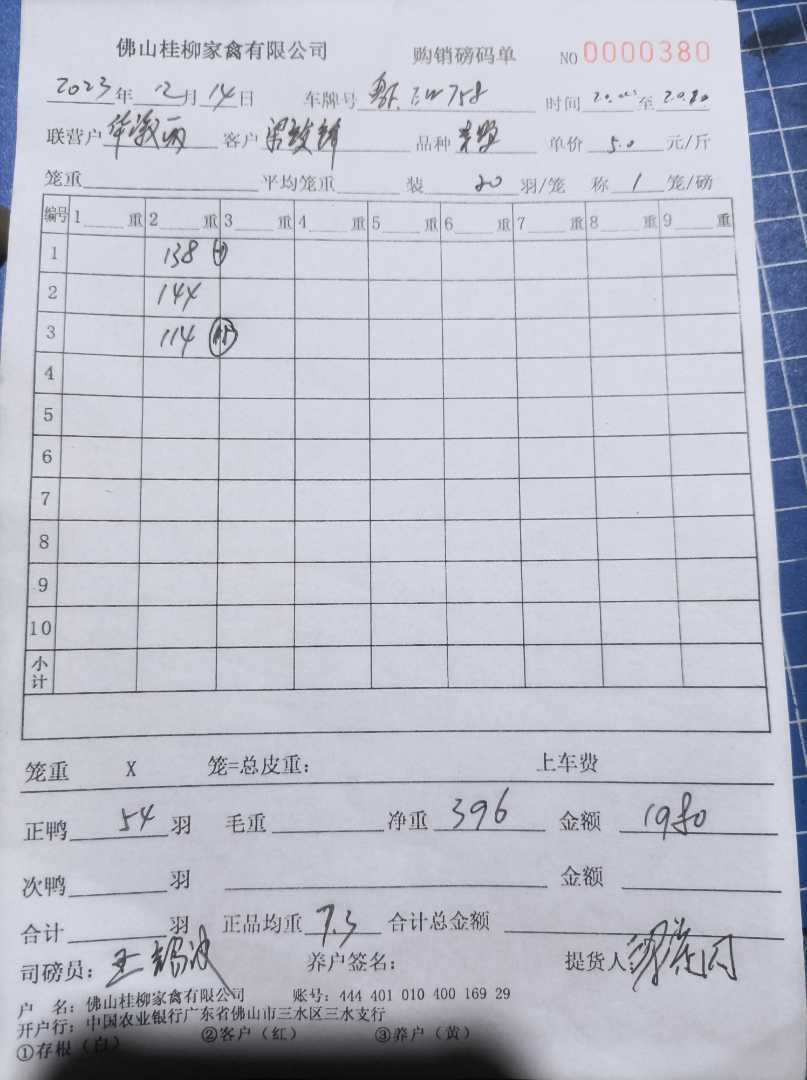 佛山桂柳家禽有限公司 购销磅码单 NO 0000380
2023年 12月 14日 车牌号 758 时间 至
联营户 客户 品种 单价 5.0 元/斤
笼重 平均笼重 装 20 羽/笼 称 1 笼/磅
编号 1 重 2 重 3 重 4 重 5 重 6 重 7 重 8 重 9 重
1 138
2 144
3 114
4
5
6
7
8
9
10
小计
笼重 X 笼=总皮重: 上车费
正鸭 54 羽 毛重 净重 396 金额 1980
次鸭 羽 金额
合计 羽 正品均重 7.3 合计总金额
司磅员: 养户签名: 提货人:
户 名: 佛山桂柳家禽有限公司 账号: 444 401 010 400 169 29
开户行: 中国农业银行广东省佛山市三水区三水支行
①存根(白) ②客户(红) ③养户(黄)